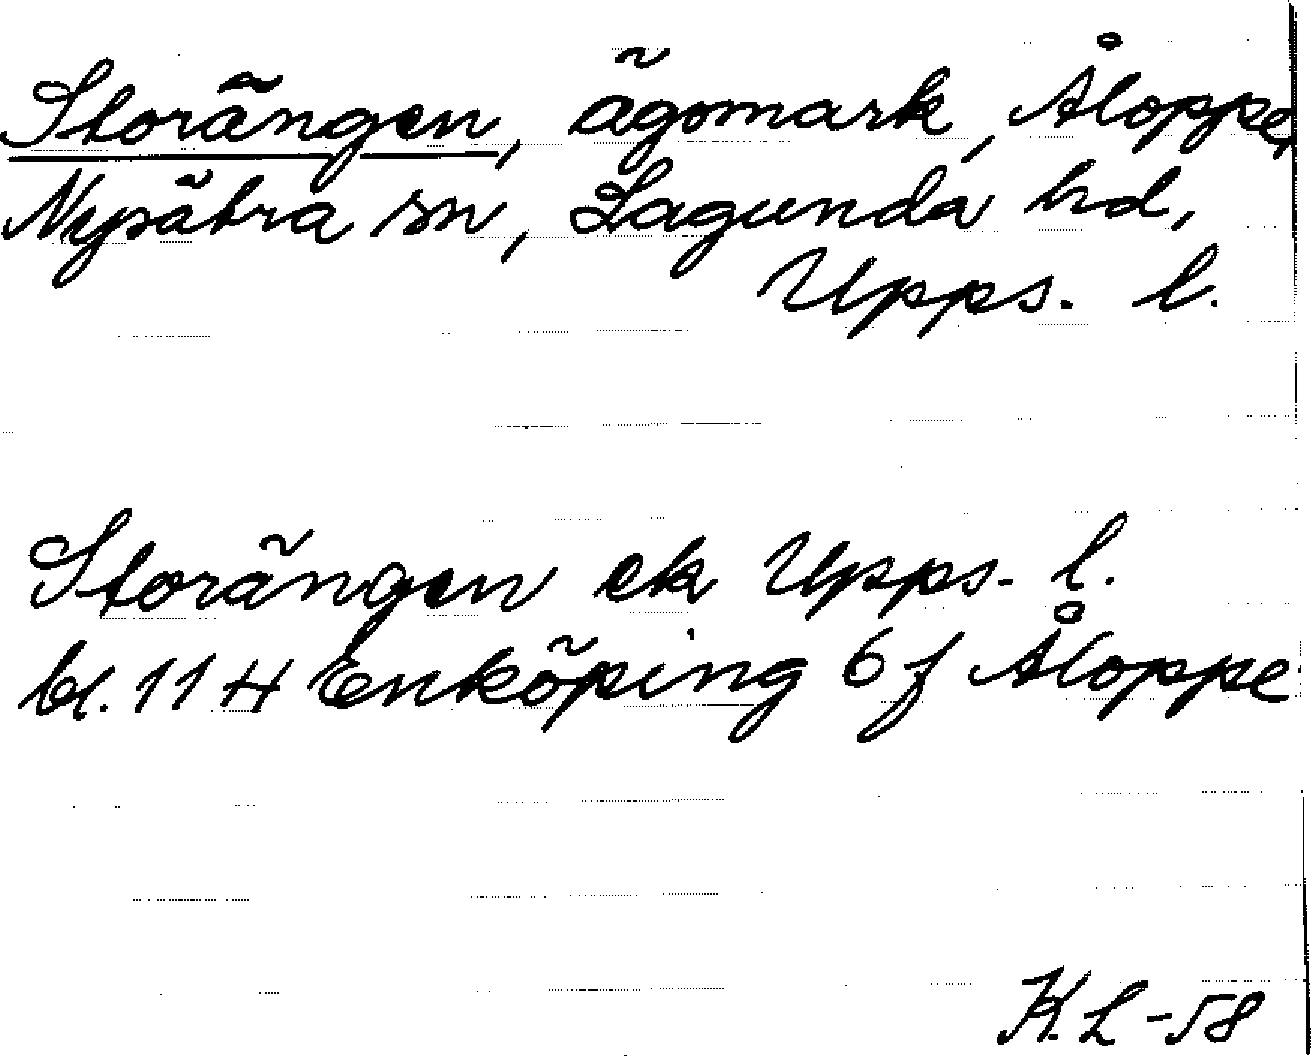 Storängen, ägomark, Åloppe,
Nysätra sn, Lagunda hd,
Upps. l.
Storängen ek Upps. l.
bl. 11 H Enköping 6 f Åloppe
K.L-58